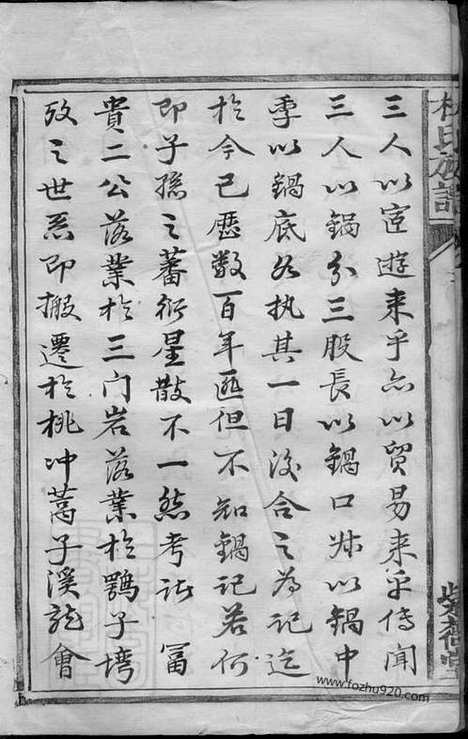 三人以宦遊来乎亦以貿易来乎传闻
三人以鍋分三股長以鍋口叔以鍋中
季以鍋底各执其一日後合之為记迄
於今已歷数百年匪但不知鍋记若何
即子孫之蕃衍星散不一然考诸 冨
貴二公落業於三门岩落業於鹗子塆
攷之世系即搬遷於桃冲蒿子溪龍會
杜氏族譜
www.fozhu920.com